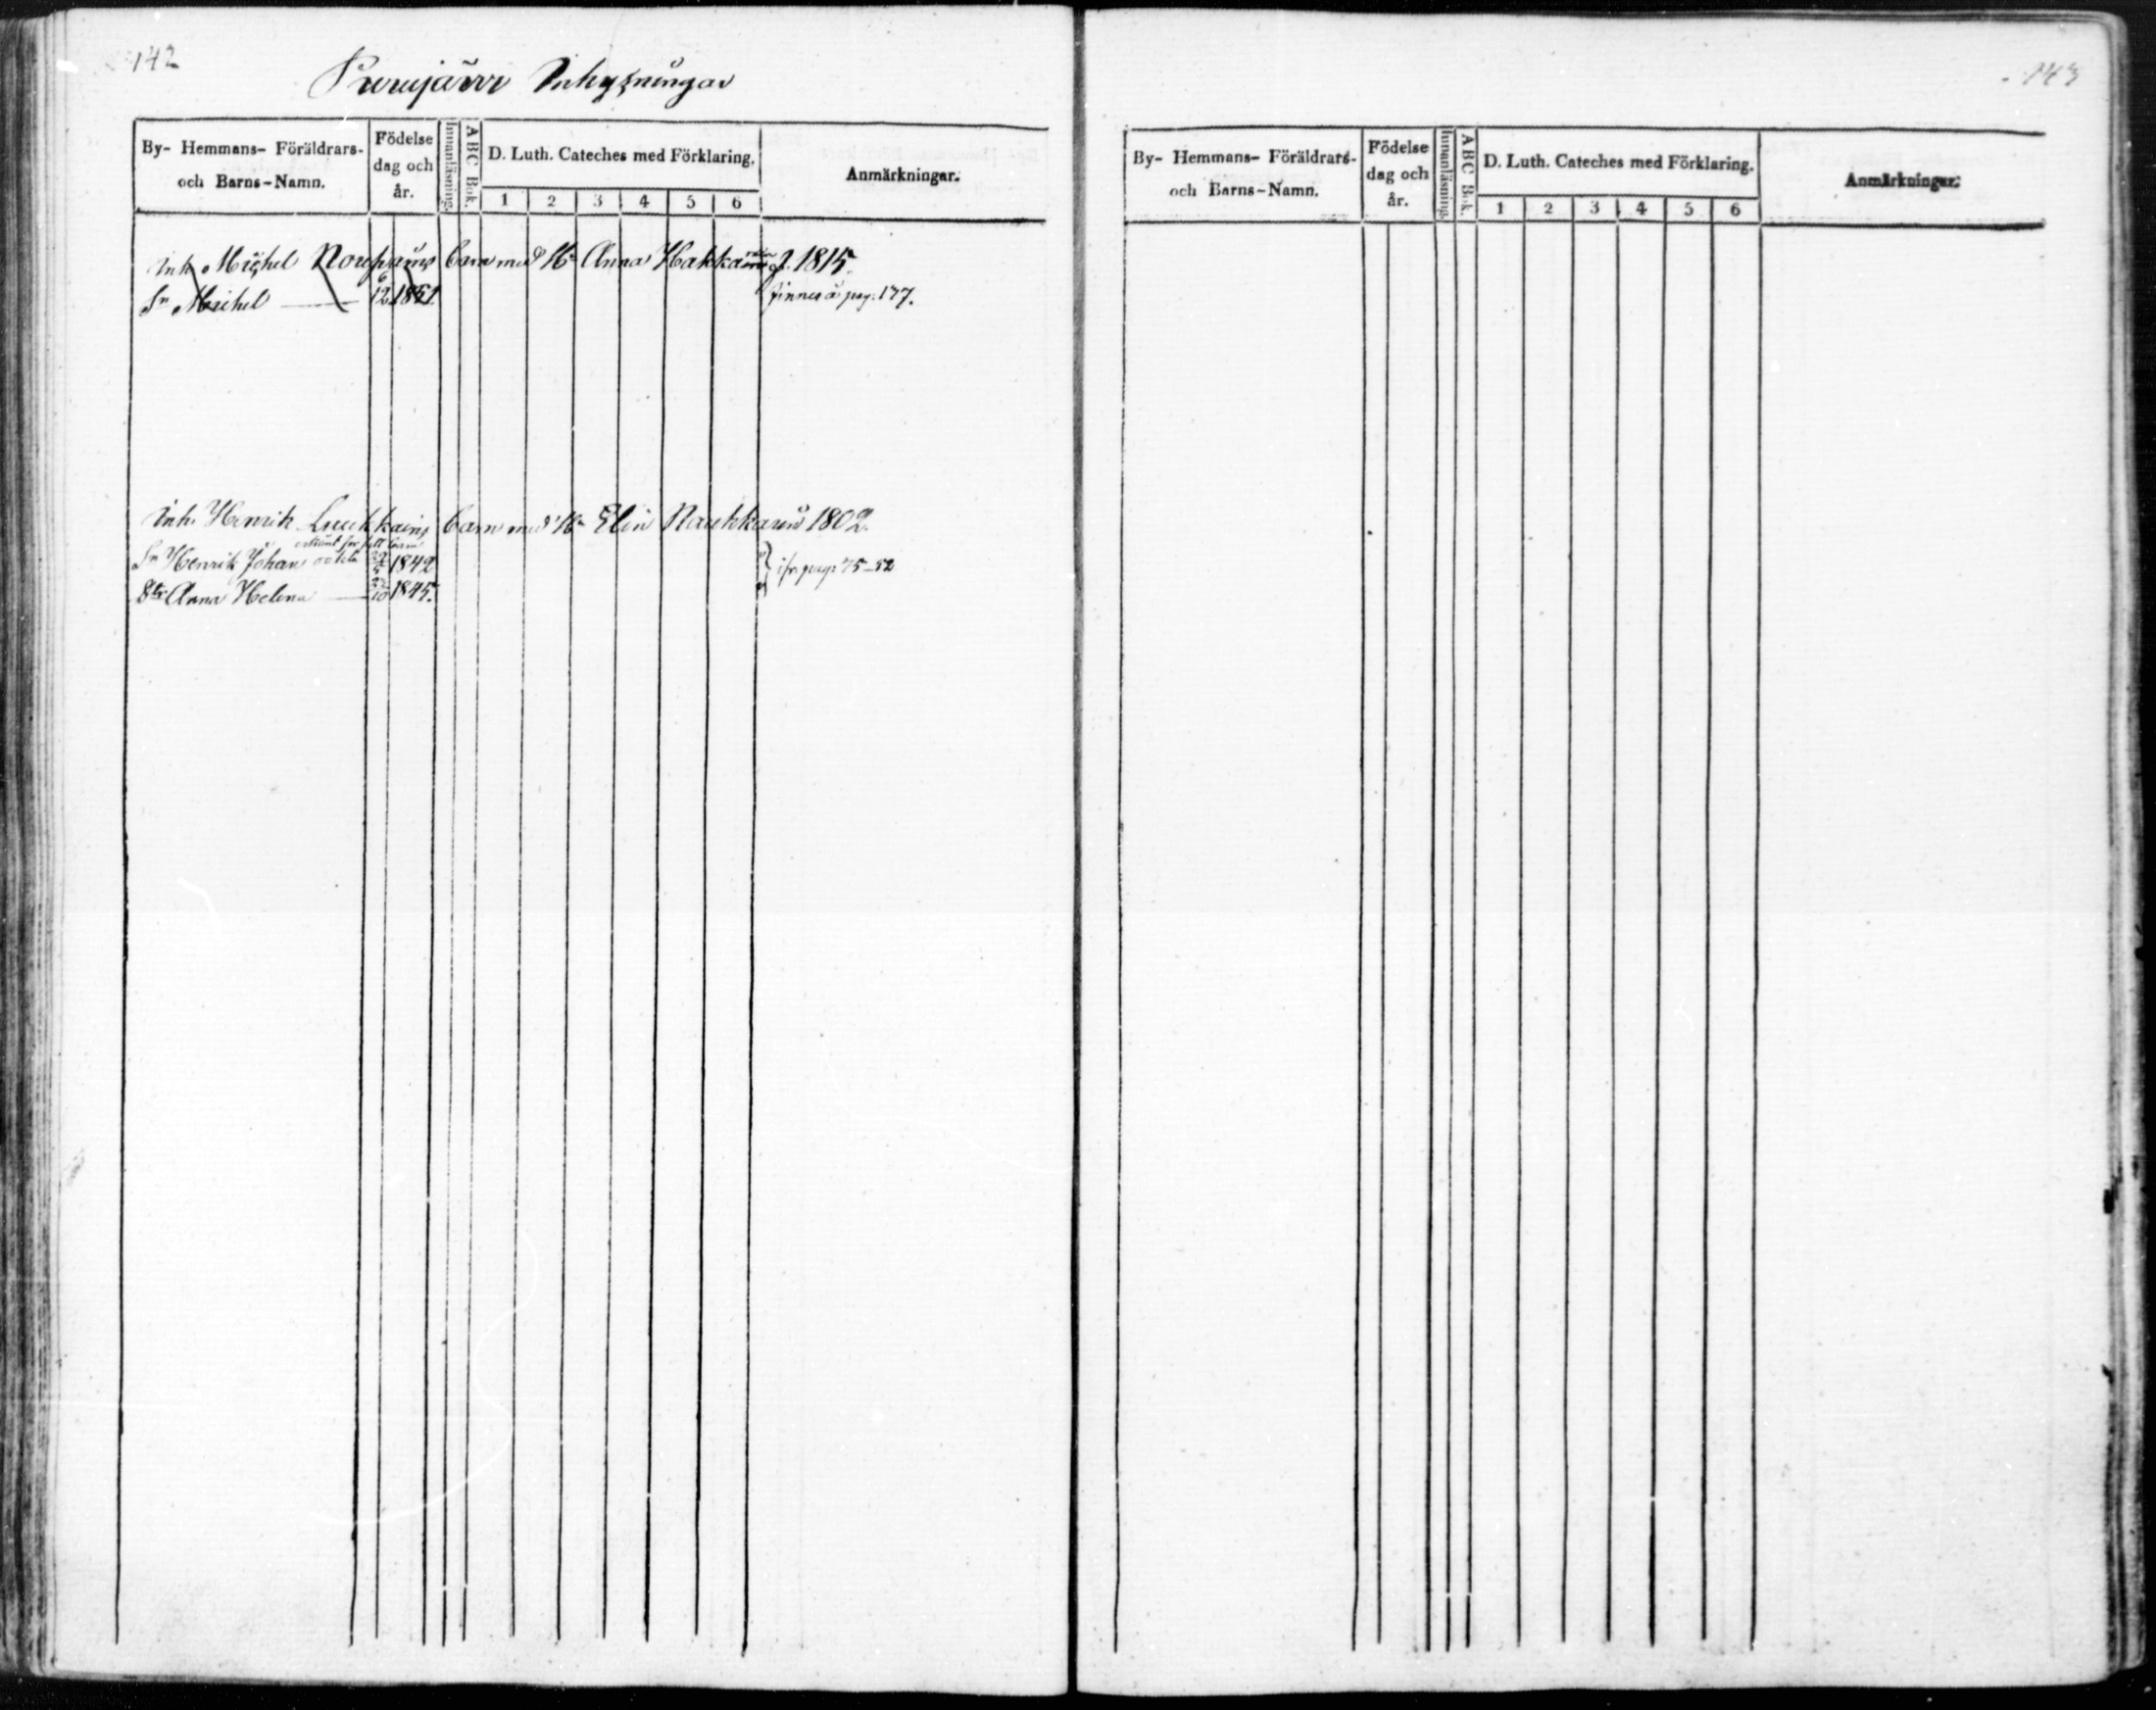 142
Inhysningar
By- Hemmans- Föräldrars- och Barns-Namn.
Födelse dag och år.
Innanläsning.
A B C Bok.
D. Luth. Cateches med Förklaring.
1 2 3 4 5 6
Anmärkningar.
Inh. Michel barn med H. Anna f. 1815.
Sn Michel 6/12 1851. finnes å pag. 177.
Inh. Henrik Luukkains barn med H. Elin Naukkarin 1802.
Sn Henrik Johan 1842
Dtr Anna Helena 1845.
ifr. pag. 75-52
143
By- Hemmans- Föräldrars- och Barns-Namn.
Födelse dag och år.
Innanläsning.
A B C Bok.
D. Luth. Cateches med Förklaring.
1 2 3 4 5 6
Anmärkningar.